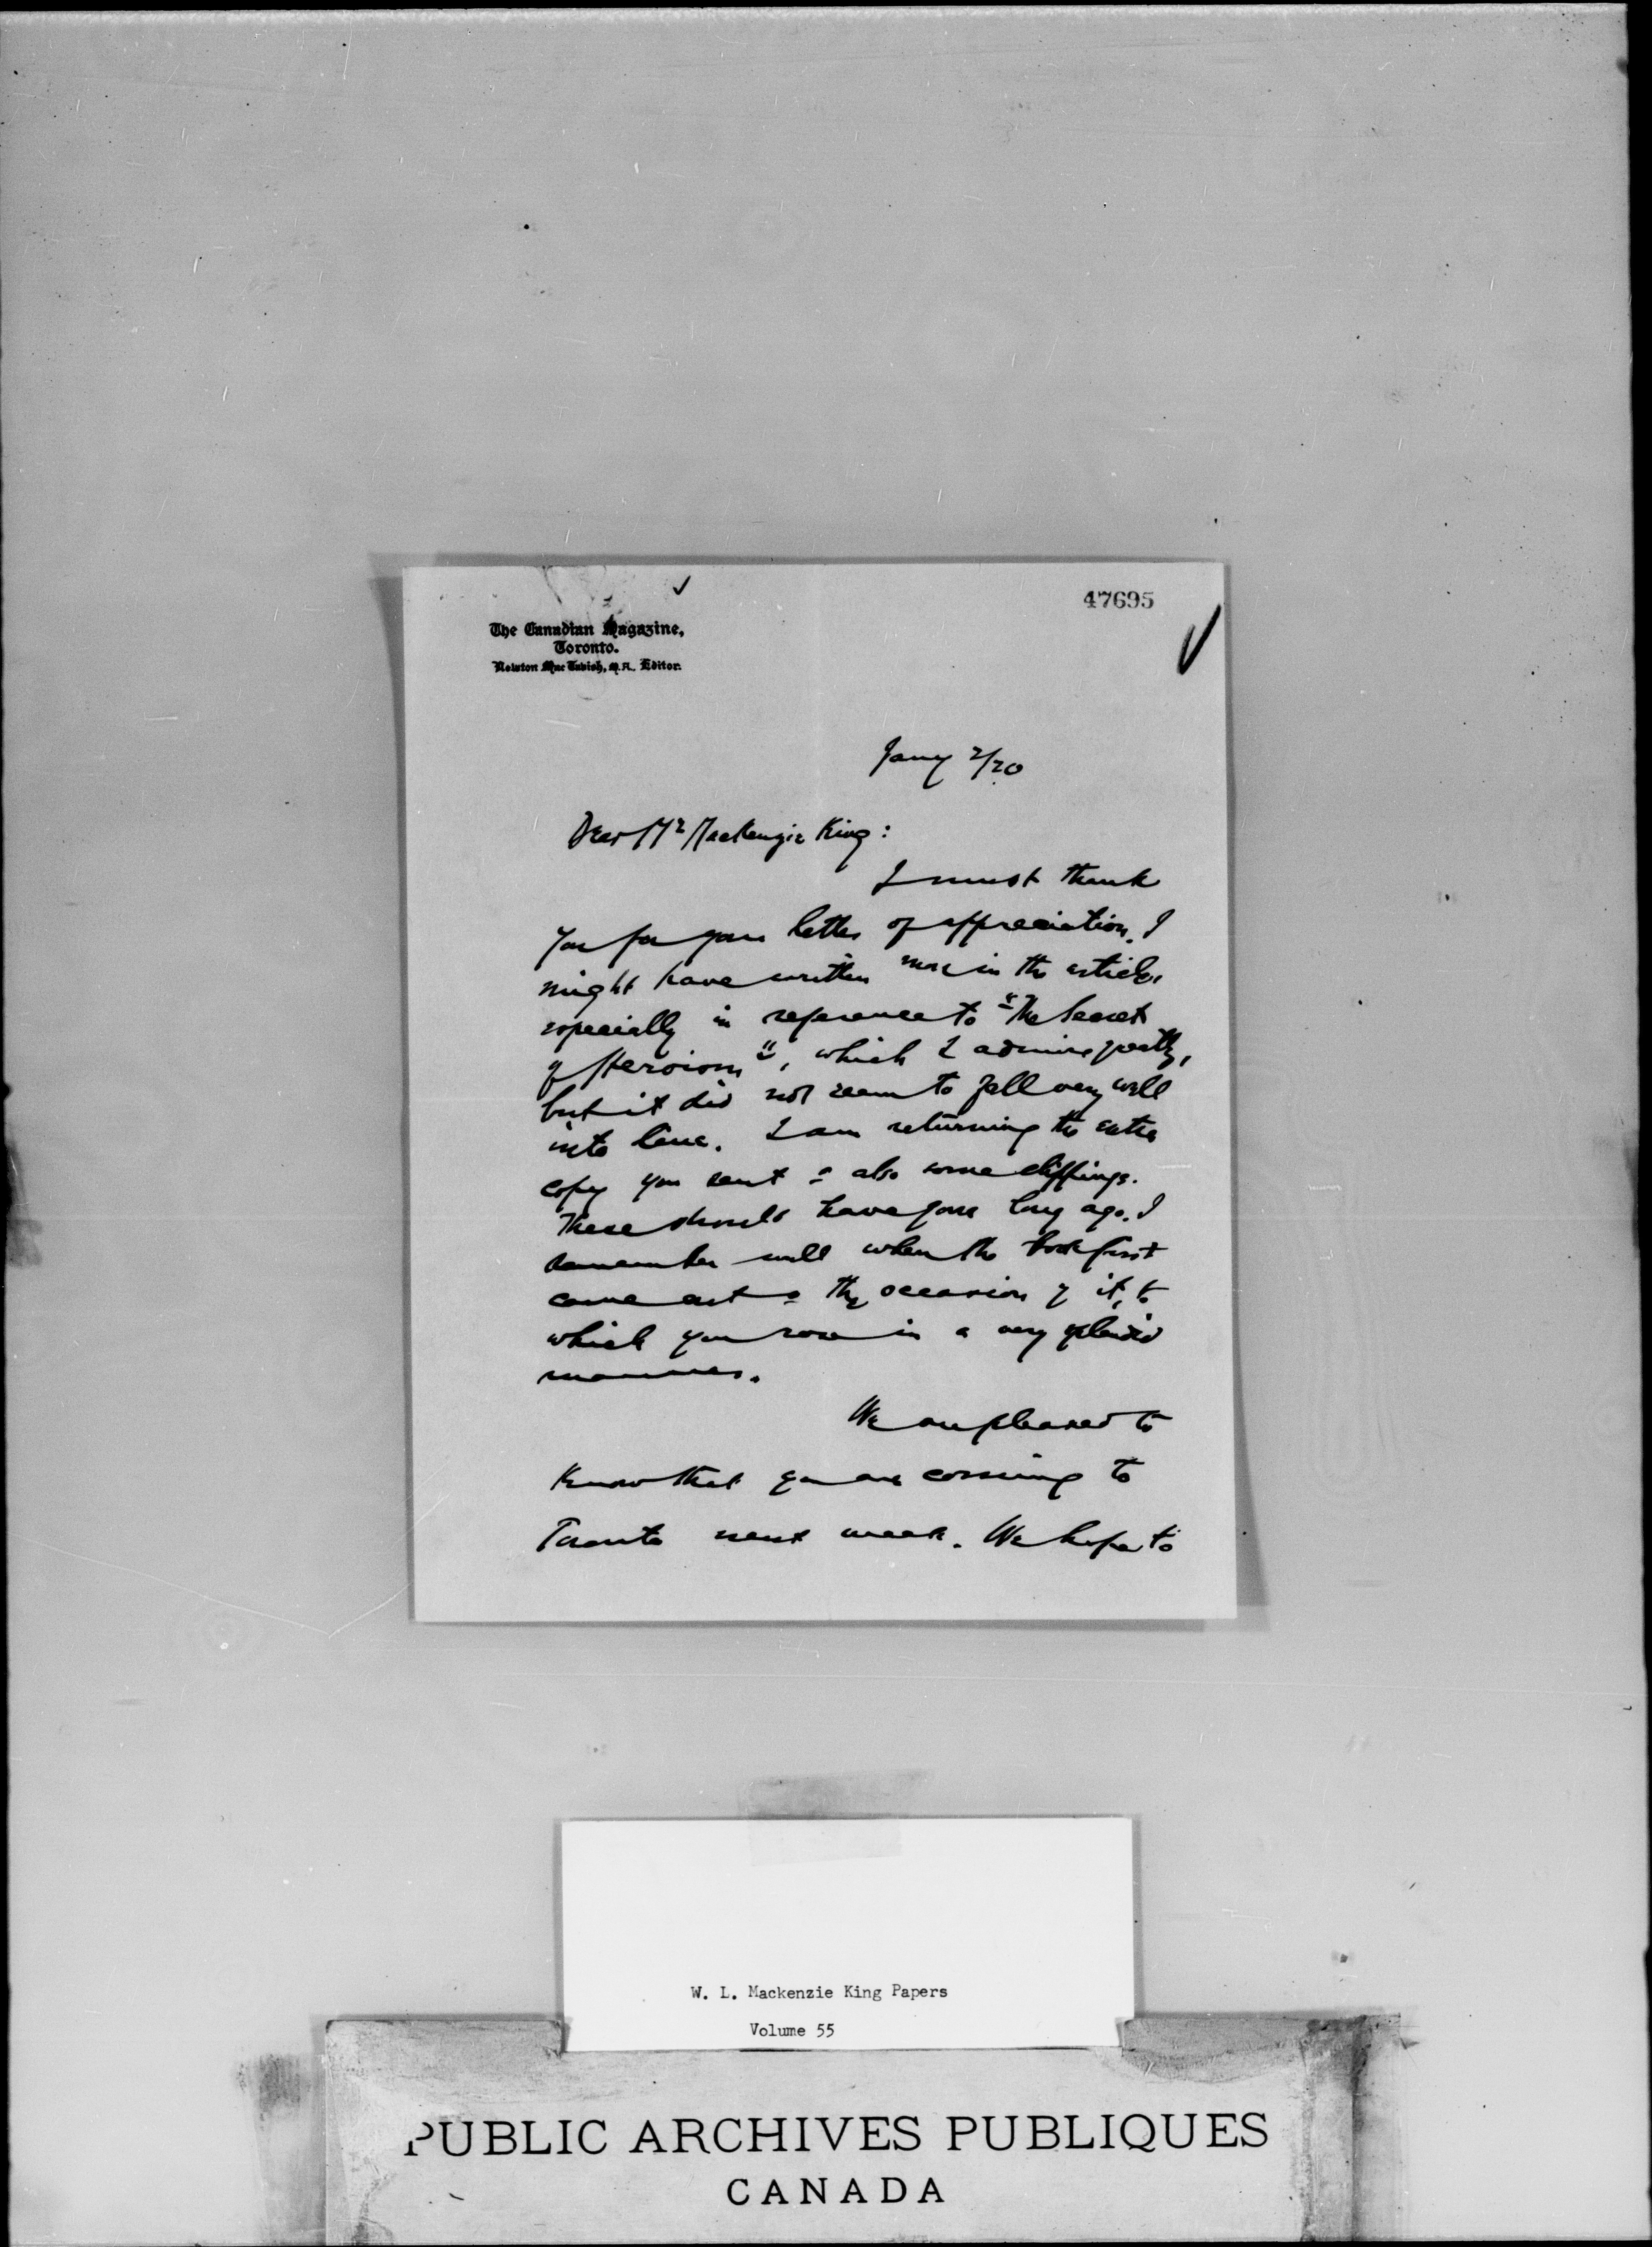 47695
The Canadian Magazine,
Toronto.
Newton MacTavish, M.A. Editor.
Jany 2/20
Dear Mr MacKenzie King:
I must thank
you for your letter of appreciation. I
might have written more in the article,
especially in reference to "The Secret
of Heroism", which I admire greatly,
but it did not seem to fall very well
into line. I am returning the extra
copy you sent & also some clippings.
These should have gone long ago. I
remember well when the book first
came out & the occasion of it, to
which you rose in a very splendid
manner.
We are pleased to
know that you are coming to
Toronto next week. We hope to
W. L. Mackenzie King Papers
Volume 55
PUBLIC ARCHIVES PUBLIQUES
CANADA